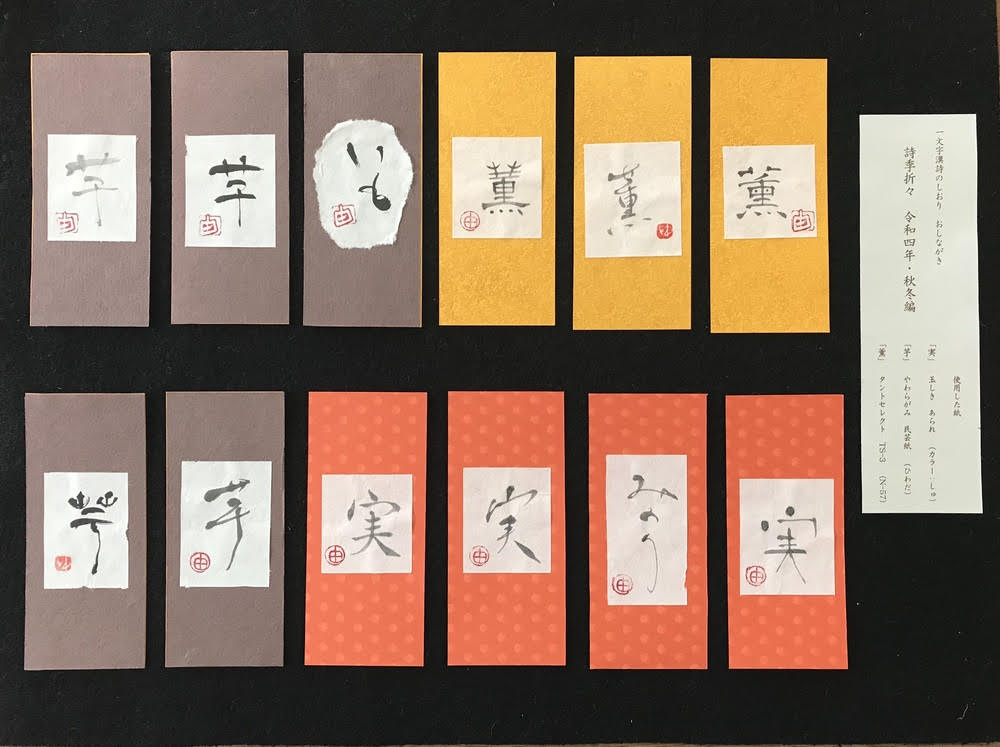 芋
芋
いも
薫
薫
薫
芋
芋
実
実
みのり
実
一文字漢詩のしおり おしながき
詩季折々 令和四年・秋冬編
使用した紙
「実」 玉しき あられ （カラー：しゅ）
「芋」 やわらがみ 民芸紙 （ひわだ）
「薫」 タントセレクト TS-3 （N-57）